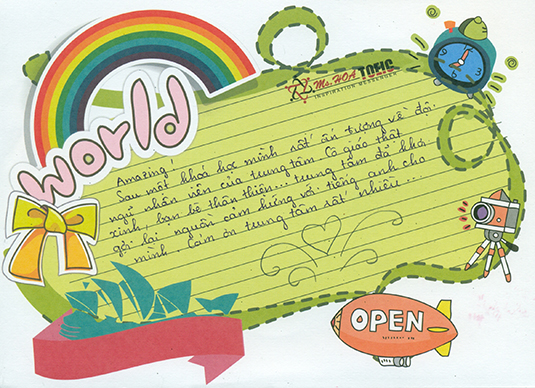 world
Ms. HOA TOEIC
INSPIRATION MESSENGER
Amazing!
Sau một khoá học mình rất ấn tượng về đội
ngũ nhân viên của trung tâm. Cô giáo thật
xinh, bạn bè thân thiện... trung tâm đã khơi
gợi lại nguồn cảm hứng với tiếng anh cho
mình. Cảm ơn trung tâm rất nhiều...
OPEN